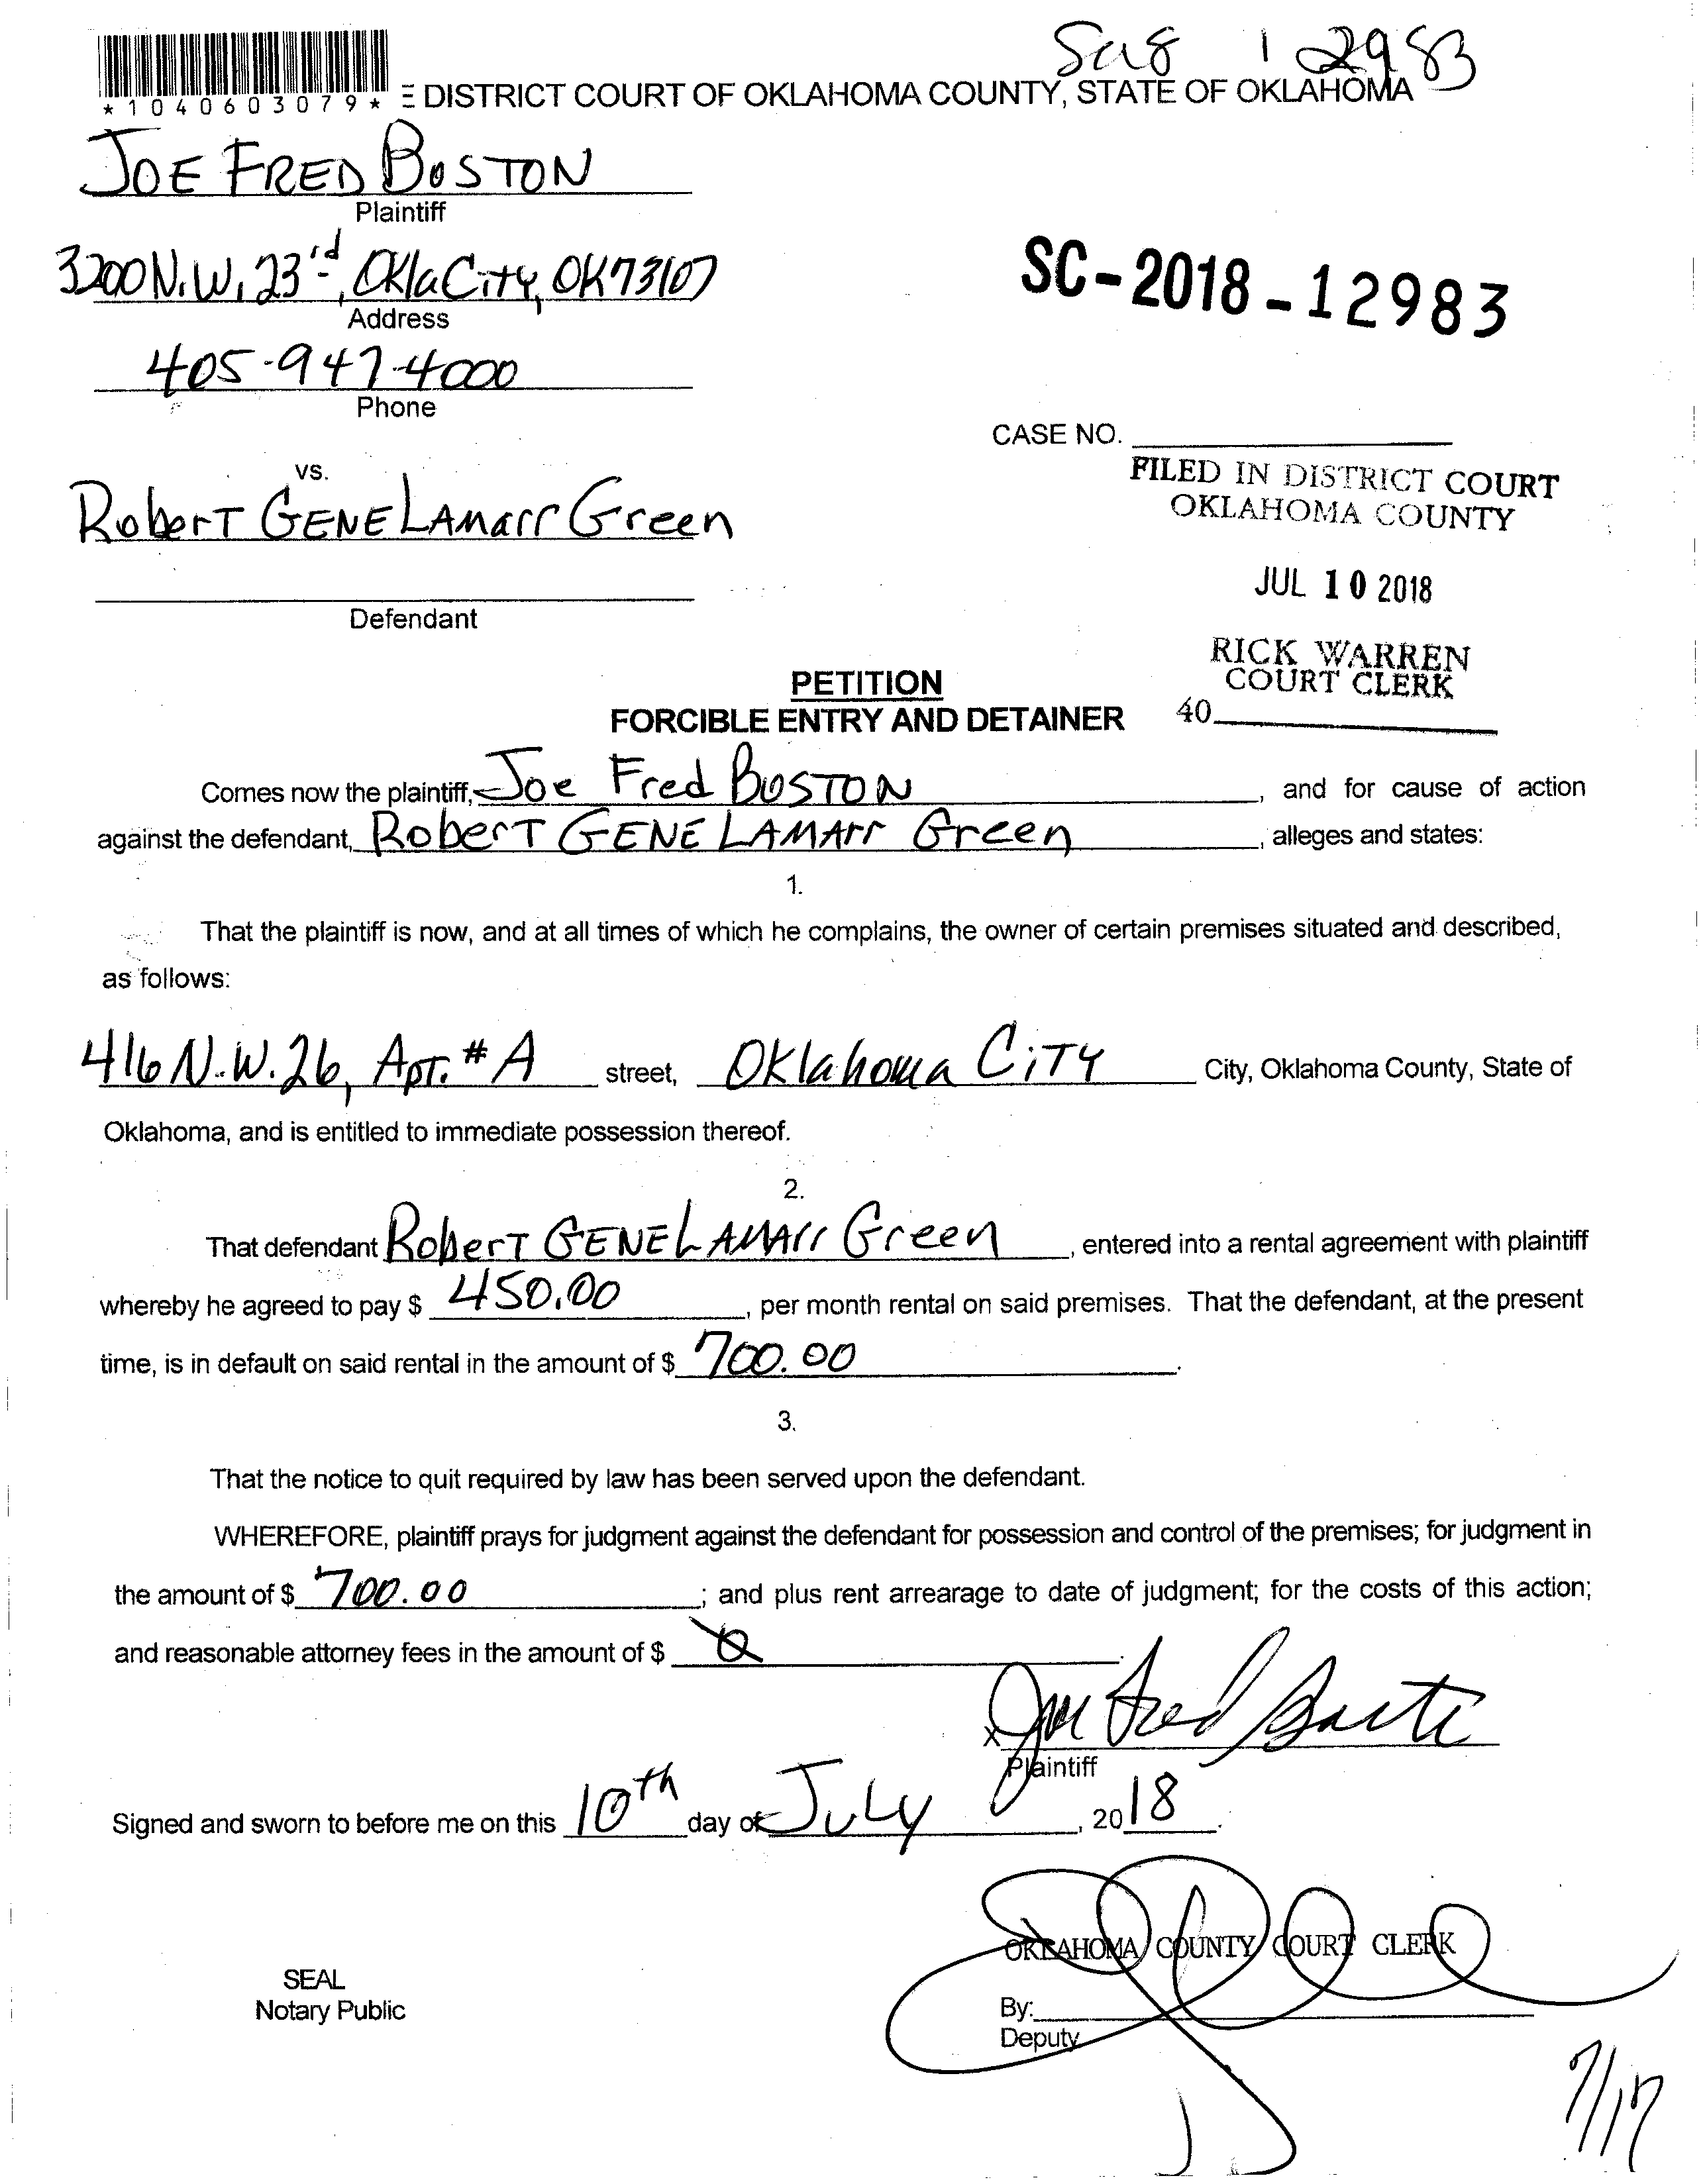 Sc18 12983
*1040603079* DISTRICT COURT OF OKLAHOMA COUNTY, STATE OF OKLAHOMA
JOE FRED BOSTON
Plaintiff
3200 N.W. 23rd, Okla City, OK 73107
Address
SC-2018-12983
405-947-4000
Phone
CASE NO.
vs.
FILED IN DISTRICT COURT
OKLAHOMA COUNTY
Robert GENE LAmarr Green
JUL 10 2018
Defendant
RICK WARREN
COURT CLERK
40
PETITION
FORCIBLE ENTRY AND DETAINER
Comes now the plaintiff, Joe Fred BOSTON, and for cause of action
against the defendant, RoberT GENE LAMArr Green, alleges and states:
1.
That the plaintiff is now, and at all times of which he complains, the owner of certain premises situated and described,
as follows:
416 N.W. 26, APT. # A street, OKlahoma CiTY City, Oklahoma County, State of
Oklahoma, and is entitled to immediate possession thereof.
2.
That defendant RoberT GENE LAMArr Green, entered into a rental agreement with plaintiff
whereby he agreed to pay $ 450.00, per month rental on said premises. That the defendant, at the present
time, is in default on said rental in the amount of $ 700.00.
3.
That the notice to quit required by law has been served upon the defendant.
WHEREFORE, plaintiff prays for judgment against the defendant for possession and control of the premises; for judgment in
the amount of $ 700.00; and plus rent arrearage to date of judgment; for the costs of this action;
and reasonable attorney fees in the amount of $ 0.
x Joe Fred Boston
Plaintiff
Signed and sworn to before me on this 10th day of July, 2018.
OKLAHOMA COUNTY COURT CLERK
SEAL
Notary Public
By:
Deputy
7/17